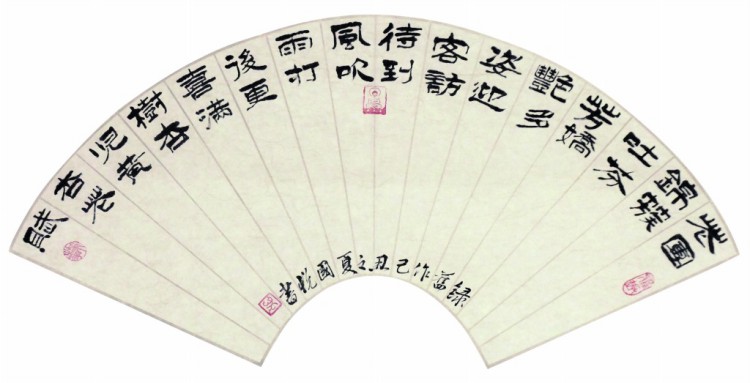 花團
錦簇
吐芬
芳嬌
豔多
姿迎
客訪
待到
風吹
雨打
後更
喜滿
樹杏
兒黃
杏花
賦
錄舊作己丑之夏國悅書